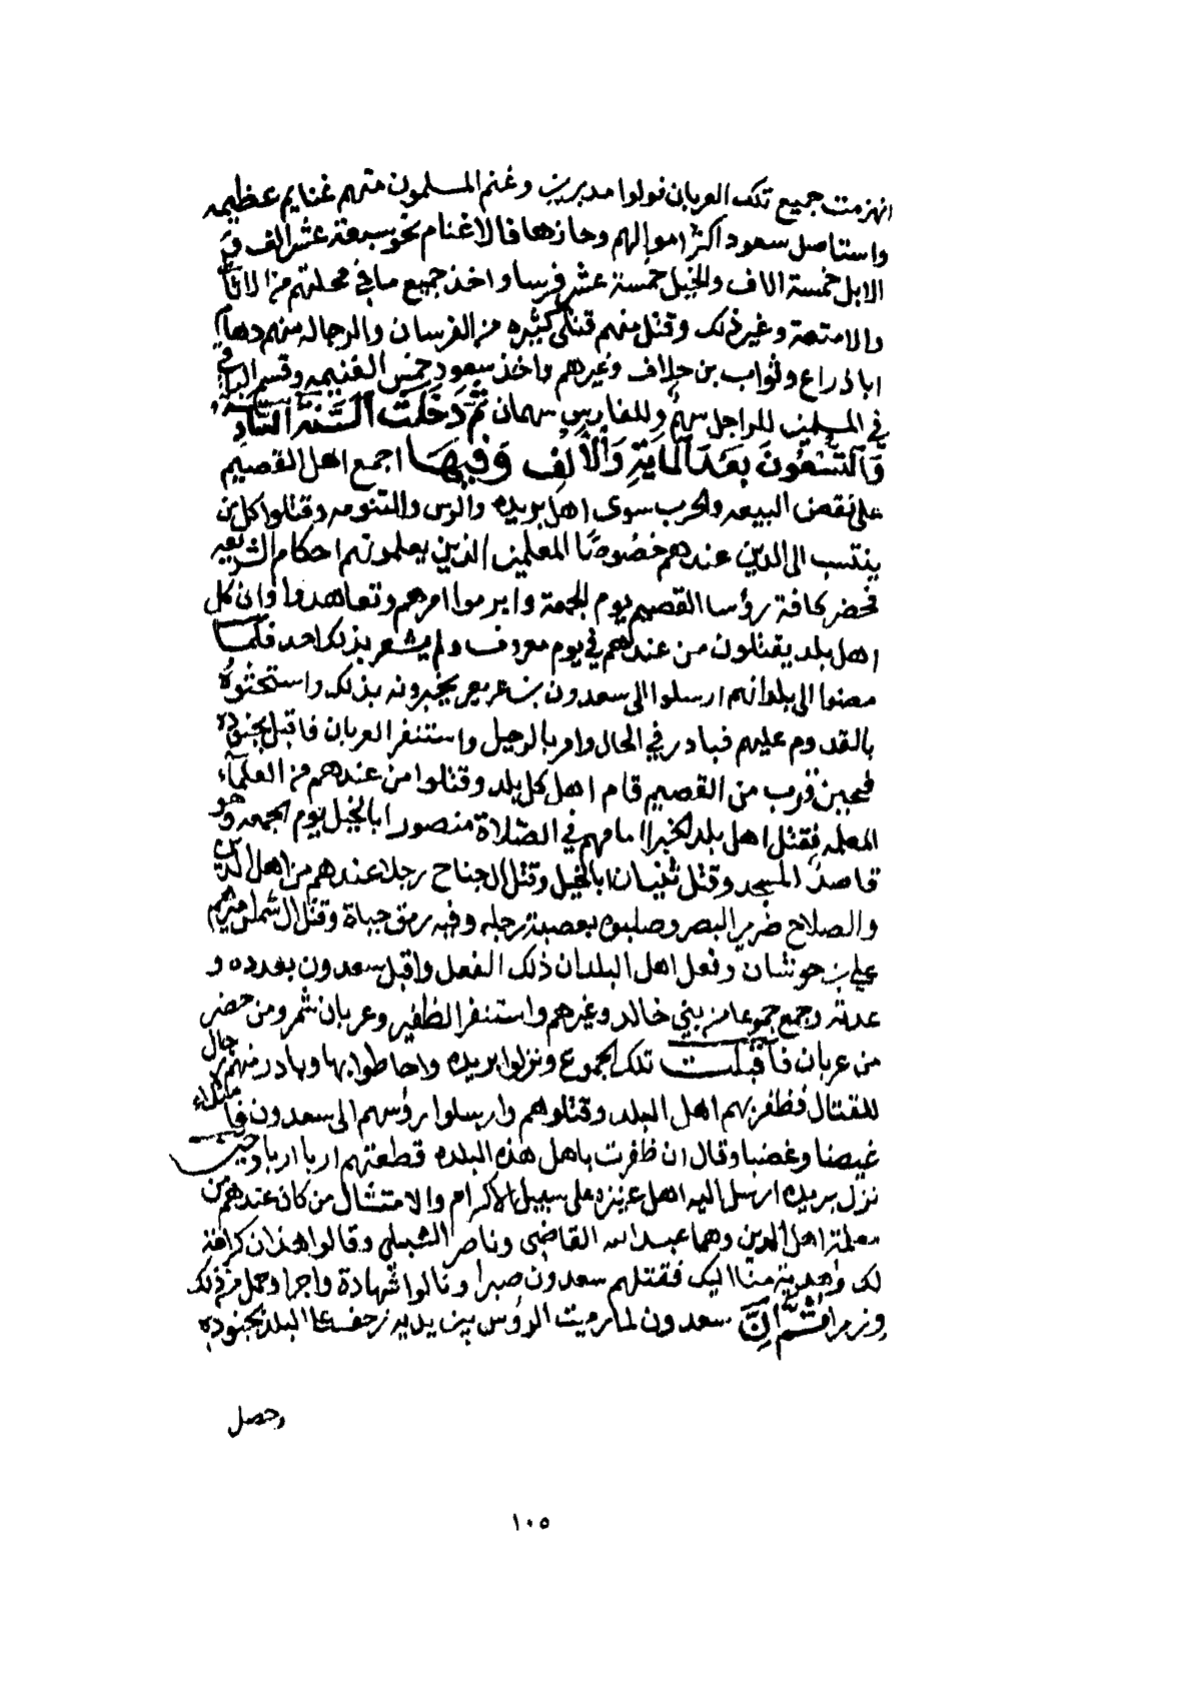 انهزمت جميع تلك العربان فولوا مدبرين وغنم المسلمون منهم غنايم عظيمه
واستاصل سعود اكثر اموالهم وحازها فالاغنام نحو سبعة عشر الف و
الابل خمسة الاف والخيل خمسة عشر فرسا واخذ جميع ما في محلتهم من الاثاث
والامتعة وغير ذلك وقتل منهم قتلى كثيره من الفرسان والرجاله منهم دهام
ابا ذراع وثواب بن حلاف وغيرهم واخذ سعود خمس الغنيمه وقسم الباقي
في المسلمين للراجل سهم وللفارس سهمان ثُمَّ دَخَلَت السَّنَة السَّادِسَة
وَالتِّسْعُونَ بَعْدَ المَايَةِ وَالأَلْفِ وَفِيهَا اجمع اهل القصيم
على نقض البيعه والحرب سوى اهل بريده والرس والتنومه وقتلوا كل من
ينتسب الى الدين عندهم خصوصًا المعلمين الذين يعلمونهم احكام الشريعه
فحضر كافة رؤسا القصيم يوم الجمعة وابرموا امرهم وتعاهدوا وان كل
اهل بلد يقتلون من عندهم في يوم معروف ولم يشعر بذلك احد فلما
مضوا الى بلدانهم ارسلوا الى سعدون بن عريعر يخبرونه بذلك واستحثوه
بالقدوم عليهم فبادر في الحال وامر بالرحيل واستنفر العربان فاقبل بجنوده
فحين قرب من القصيم قام اهل كل بلد وقتلوا من عندهم من العلمآء
المعلمه فقتل اهل بلد الخبرا امامهم في الصّلاة منصور ابا الخيل يوم الجمعه وهو
قاصد المسجد وقتل ثنيان ابا الخيل وقتل الجناح رجلا عندهم من اهل الدين
والصلاح ضرير البصر وصلبوه بعصبة رجله وفيه رمق حياة وقتل ال شماس اميرهم
علي بن حوشان وفعل اهل البلدان ذلك الفعل واقبل سعدون بعدده و
عدته وجمع جموعا من بني خالد وغيرهم واستنفر الظفير وعربان شمر ومن حضر
من عربان فَأَقْبَلَت تلك الجموع ونزلوا بريده واحاطوا بها وبادر منهم رجال
للقتال فظفر بهم اهل البلد وقتلوهم وارسلوا رؤسهم الى سعدون فامتلاء
غيضا وغضبا وقال ان ظفرت باهل هذه البلده قطعتهم اربا اربا وحين
نزل بريده ارسل اليه اهل عنيزه على سبيل الاكرام والامتثال من كان عندهم من
معلمة اهل الدين وهما عبد الله القاضي وناصر الشبيلي وقالوا هذان كرامة
لك وهدية منا اليك فقتلهم سعدون صبرا ونالوا شهادة واجرا وحمل من ذلك
وزرا ثُمَّ إِنَّ سعدون لما رميت الرؤس بين يديه زحف على البلد بجنوده
وحصل
١٠٥